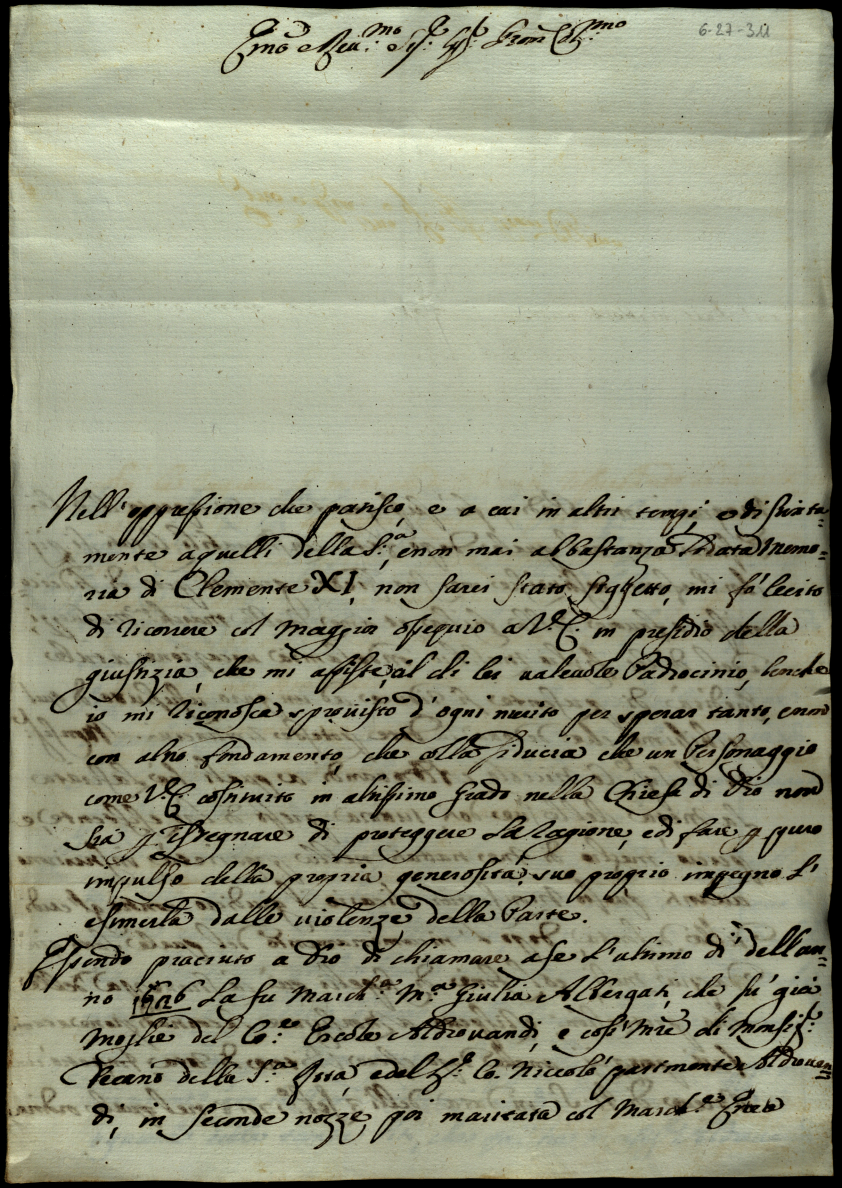 6-27-311
Em̃o e Reu.mo Sig.r Sig.r Pron Col.mo
Nell'oppressione che patisco, e a cui in altri tempi, e disuata-
mente a quelli della S.a, e non mai abbastanza lodata Memo-
ria di Clemente XI, non sarei stato soggetto, mi fò lecito
di ricorrere col maggior ossequio a V.E. in presidio della
giustizia, che mi assiste, al di lei valeuole Padrocinio, benche
io mi riconosca sprouisto d'ogni merito per sperar tanto, e non
con altro fondamento, che colla fiducia che un Personaggio
come V.E. costituito in altissimo grado nella Chiesa di Dio non
sia p isdegnare di proteggere la ragione, e di fare p puro
impulso della propria generosità suo proprio impegno l'
esimerla dalle uiolenze della Parte.
Essendo piaciuto a Dio di chiamare a se l'ultimo dì dell'an-
no 1706 la fu March.a M.a Giulia Albergati, che fu già
Moglie del Co.e Ercole Aldrouandi, e così Mrẽ di Monsig.r
Decano della S.a Rota, e del Sig.r Co. Niccolò parimente Aldrouan-
di, in seconde nozze poi maritata col March.e